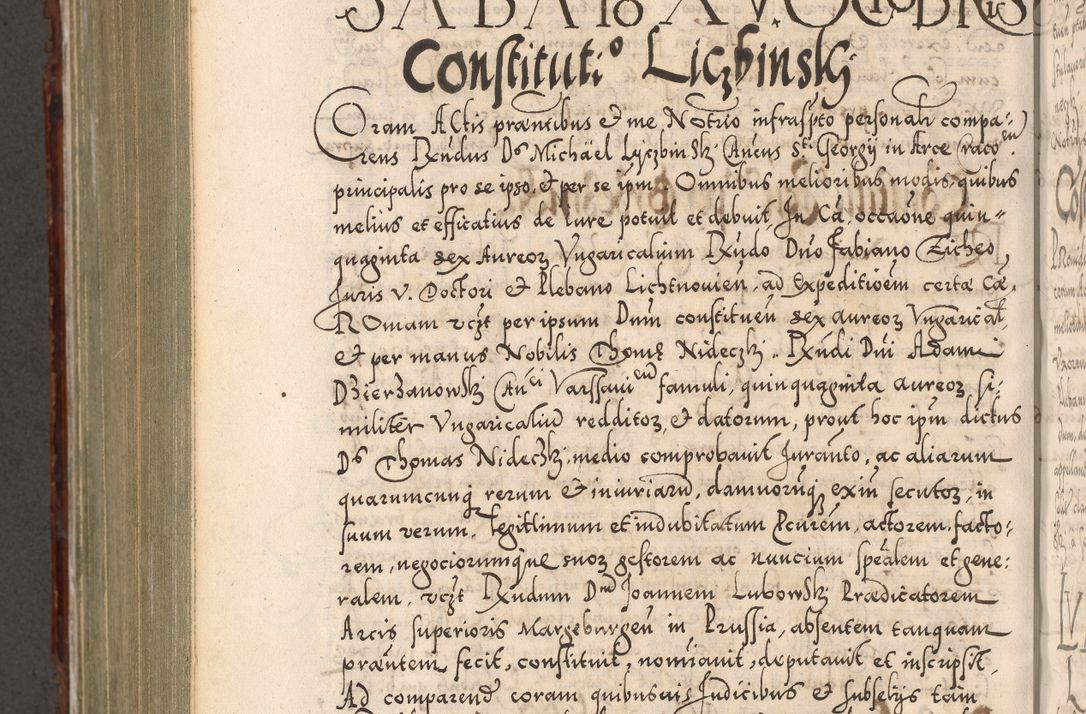 SABATO XV. OCTOBRIS
Constitutio Liczbinskj
Coram Actis præntibus et me Notrio infrascpto personalr compa:
rens Rxndus Ds Michael Lyczbinskj Canćus Sti Georgij in Arce Cracouen.
principalis pro se ipso, et per se ipm. Omnibus melioribus modis, quibus
melius et efficatius de Iure potuit et debuit, In Ca, occaone quin=
quaginta sex Aureoz Vngaricalium Rxndo Dno Fabiano Eicheo
Juris V. Doctori et Plebano Lichtnouien, ad Expeditioem certæ Cæ,
Romam vczt per ipsum Dnm constitueñ sex aureoz Vngarical,
et per manus Nobilis Thomę Nideczkj. Rxndi Dni Adam
Dzierzanowskj Canci Varssauien famuli, quinquaginta aureoz si:
militer Vngaricaliu redditoz, et datorum, prout hoc ipm dictus
Ds Thomas Nideczkj, medio comprobauit Juranto, ac aliarum
quarumcunq rerum et iniuriaru, damnoruq exin secutoz, in
suum verum, legittimum et indubitatum Pcurem, actorem, facto:
rem, negociorumque suoz gestorem ac nuncium spealem et gene:
ralem, vczt Rxndum Dnum Joannem Lubowskj Prædicatorem
Arcis superioris Margeburgeñ in Prussia, absentem tanquam
præntem, fecit, constituit, nomiauit, deputauit et inscripsit,
Ad comparend coram quibusuis Judicibus et subselijs tam